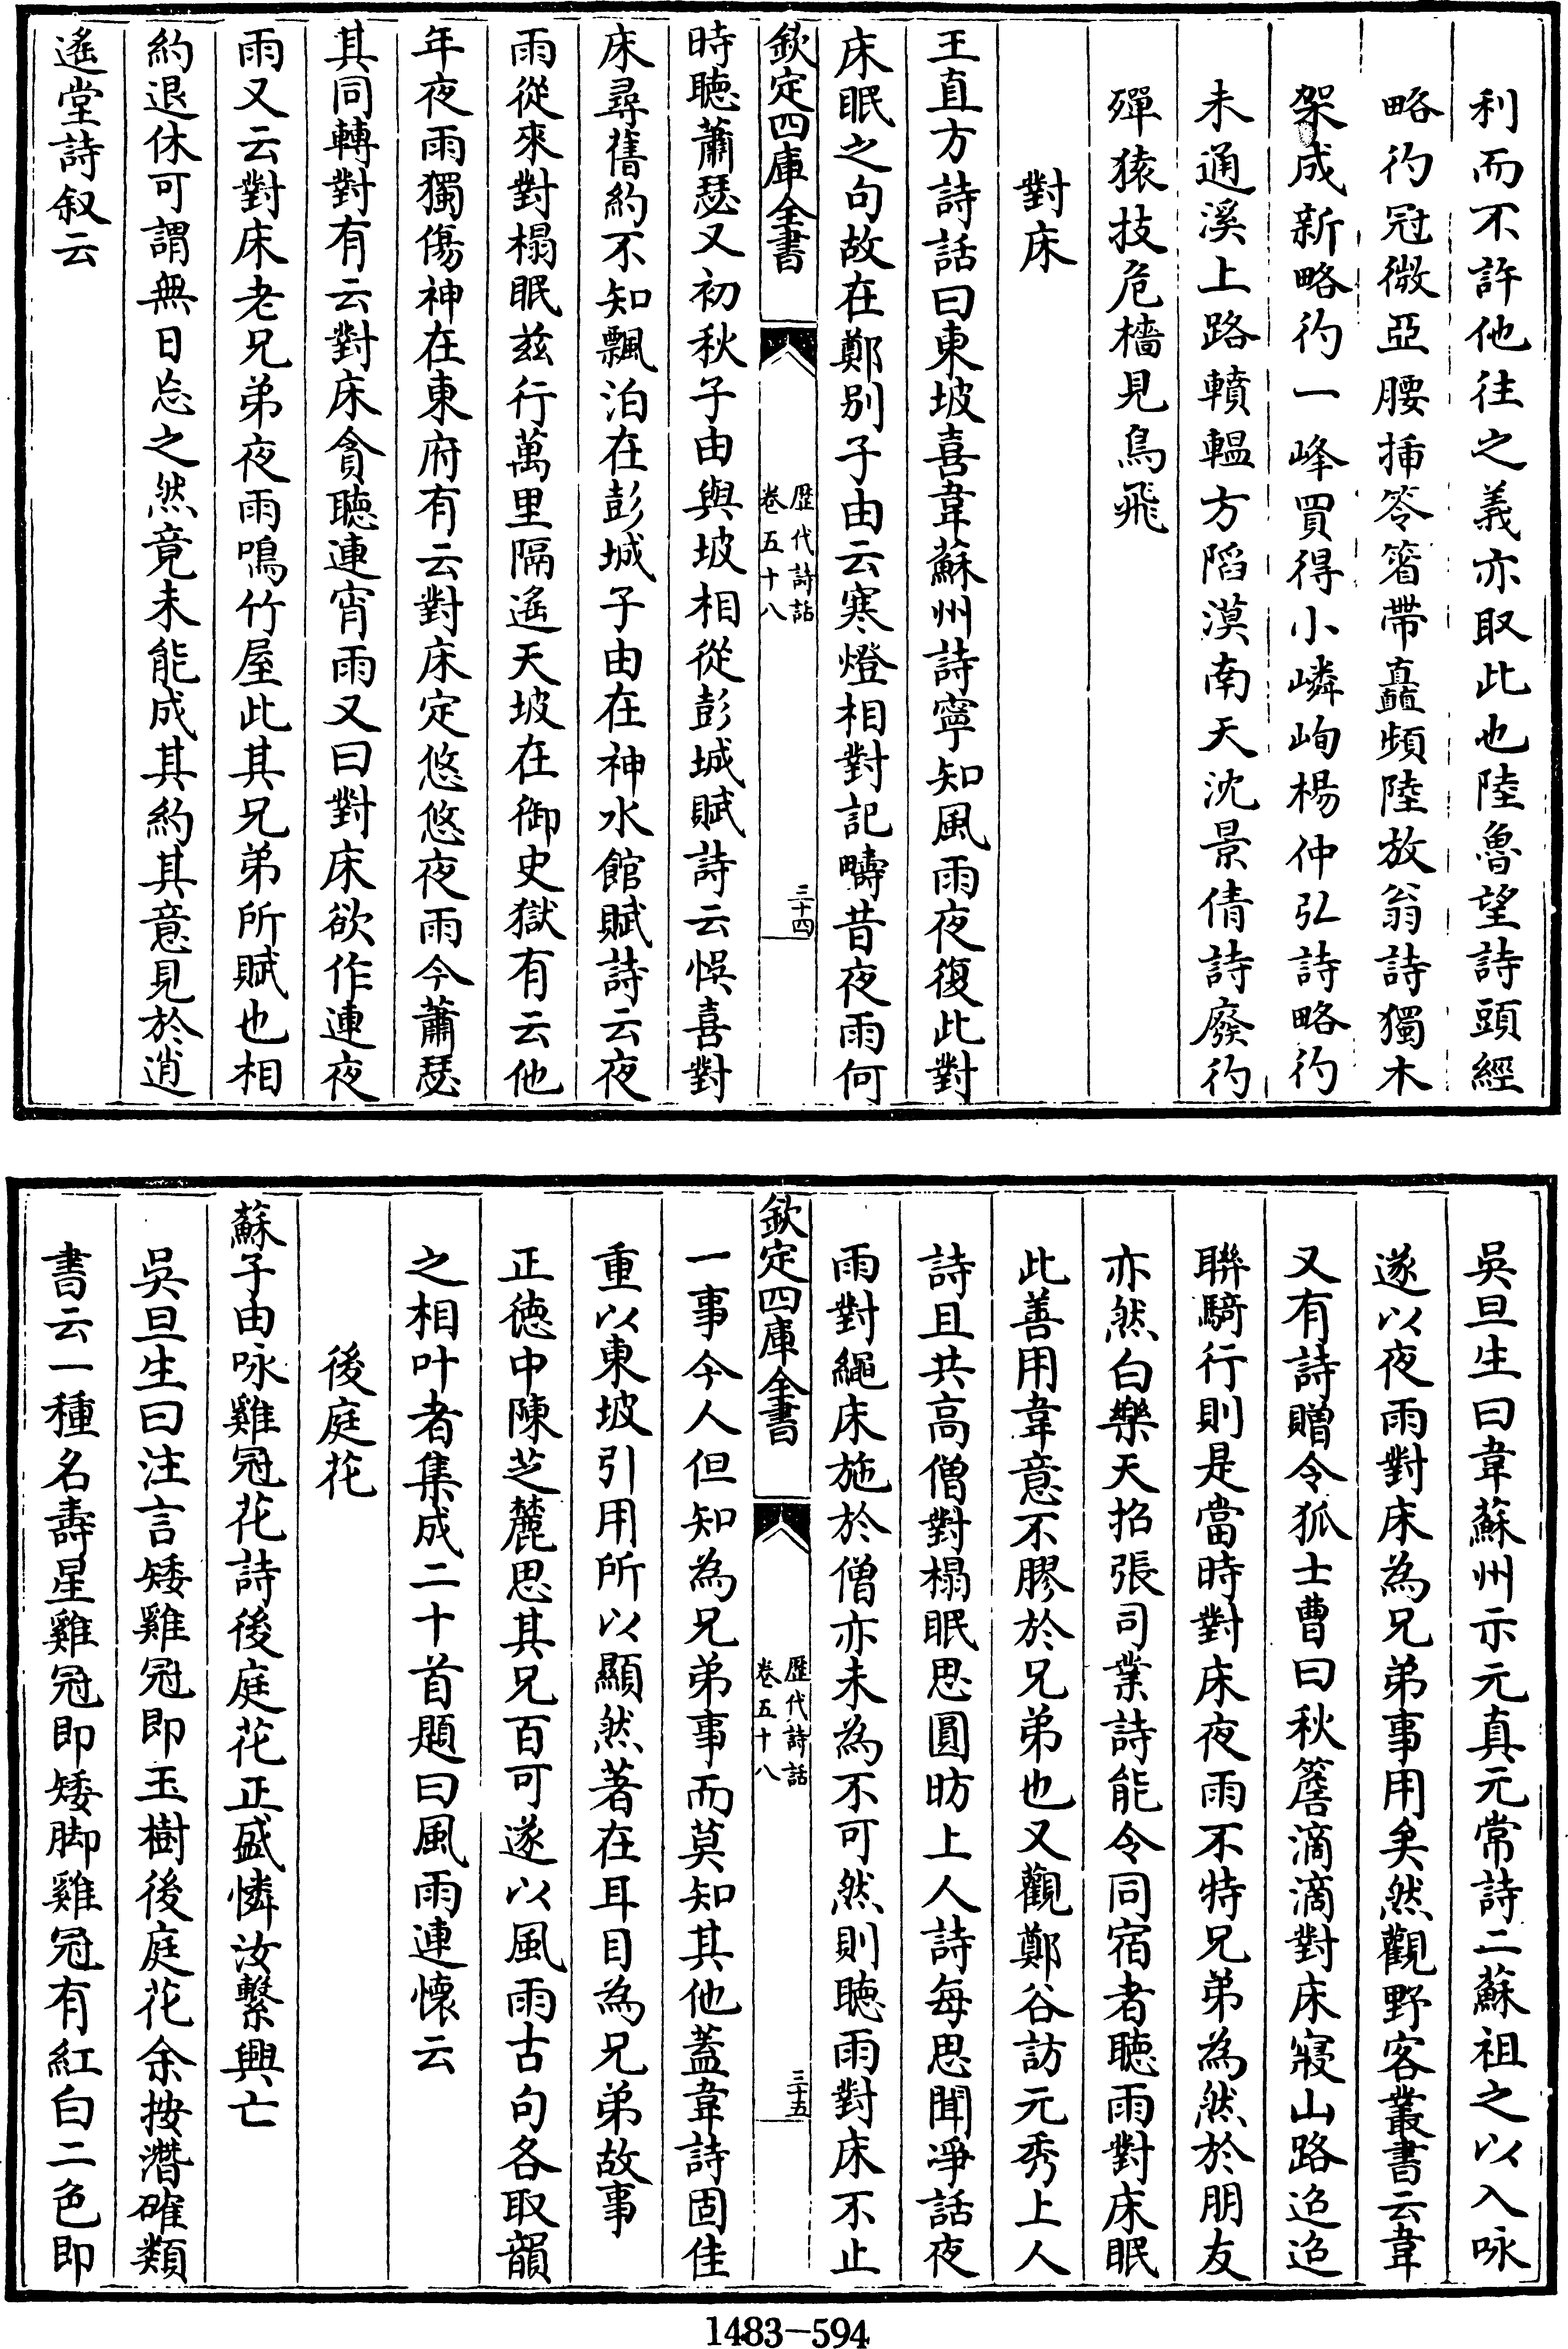 利而不許他往之義亦取此也陸魯望詩頭經
略彴冠微亞腰插笭箵帶直顛頻陸放翁詩獨木
架成新略彴一峰買得小嶙峋楊仲弘詩略彴
未通溪上路轒轀方䧟漠南天沈景倩詩廢彴
殫猿技危檣見鳥飛
對床
王直方詩話曰東坡喜韋蘇州詩寧知風雨夜復此對
床眠之句故在鄭別子由云寒燈相對記疇昔夜雨何
欽定四庫全書
歴代詩話
卷五十八
三十四
時聽蕭瑟又初秋子由與坡相從彭城賦詩云悞喜對
床尋舊約不知飄泊在彭城子由在神水館賦詩云夜
雨從來對榻眠兹行萬里隔遙天坡在御史獄有云他
年夜雨獨傷神在東府有云對床定悠悠夜雨今蕭瑟
其同轉對有云對床貪聽連宵雨又曰對床欲作連夜
雨又云對床老兄弟夜雨鳴竹屋此其兄弟所賦也相
約退休可謂無日忘之然竟未能成其約其意見於逍
遙堂詩叙云
吳旦生曰韋蘇州示元真元常詩二蘇祖之以入咏
遂以夜雨對床為兄弟事用矣然觀野客叢書云韋
又有詩贈令狐士曹曰秋簷滴滴對床寢山路迢迢
聯騎行則是當時對床夜雨不特兄弟為然於朋友
亦然白樂天招張司業詩能令同宿者聽雨對床眠
此善用韋意不膠於兄弟也又觀鄭谷訪元秀上人
詩且共高僧對榻眠思圓昉上人詩每思聞凈話夜
雨對繩床施於僧亦未為不可然則聽雨對床不止
欽定四庫全書
歴代詩話
卷五十八
三十五
一事今人但知為兄弟事而莫知其他蓋韋詩固佳
重以東坡引用所以顯然著在耳目為兄弟故事
正徳中陳芝麓思其兄百可遂以風雨古句各取韻
之相叶者集成二十首題曰風雨連懷云
後庭花
蘇子由咏雞冠花詩後庭花正盛憐汝繫興亡
吳旦生曰注言矮雞冠即玉樹後庭花余按潛確類
書云一種名壽星雞冠即矮脚雞冠有紅白二色即
1483—594